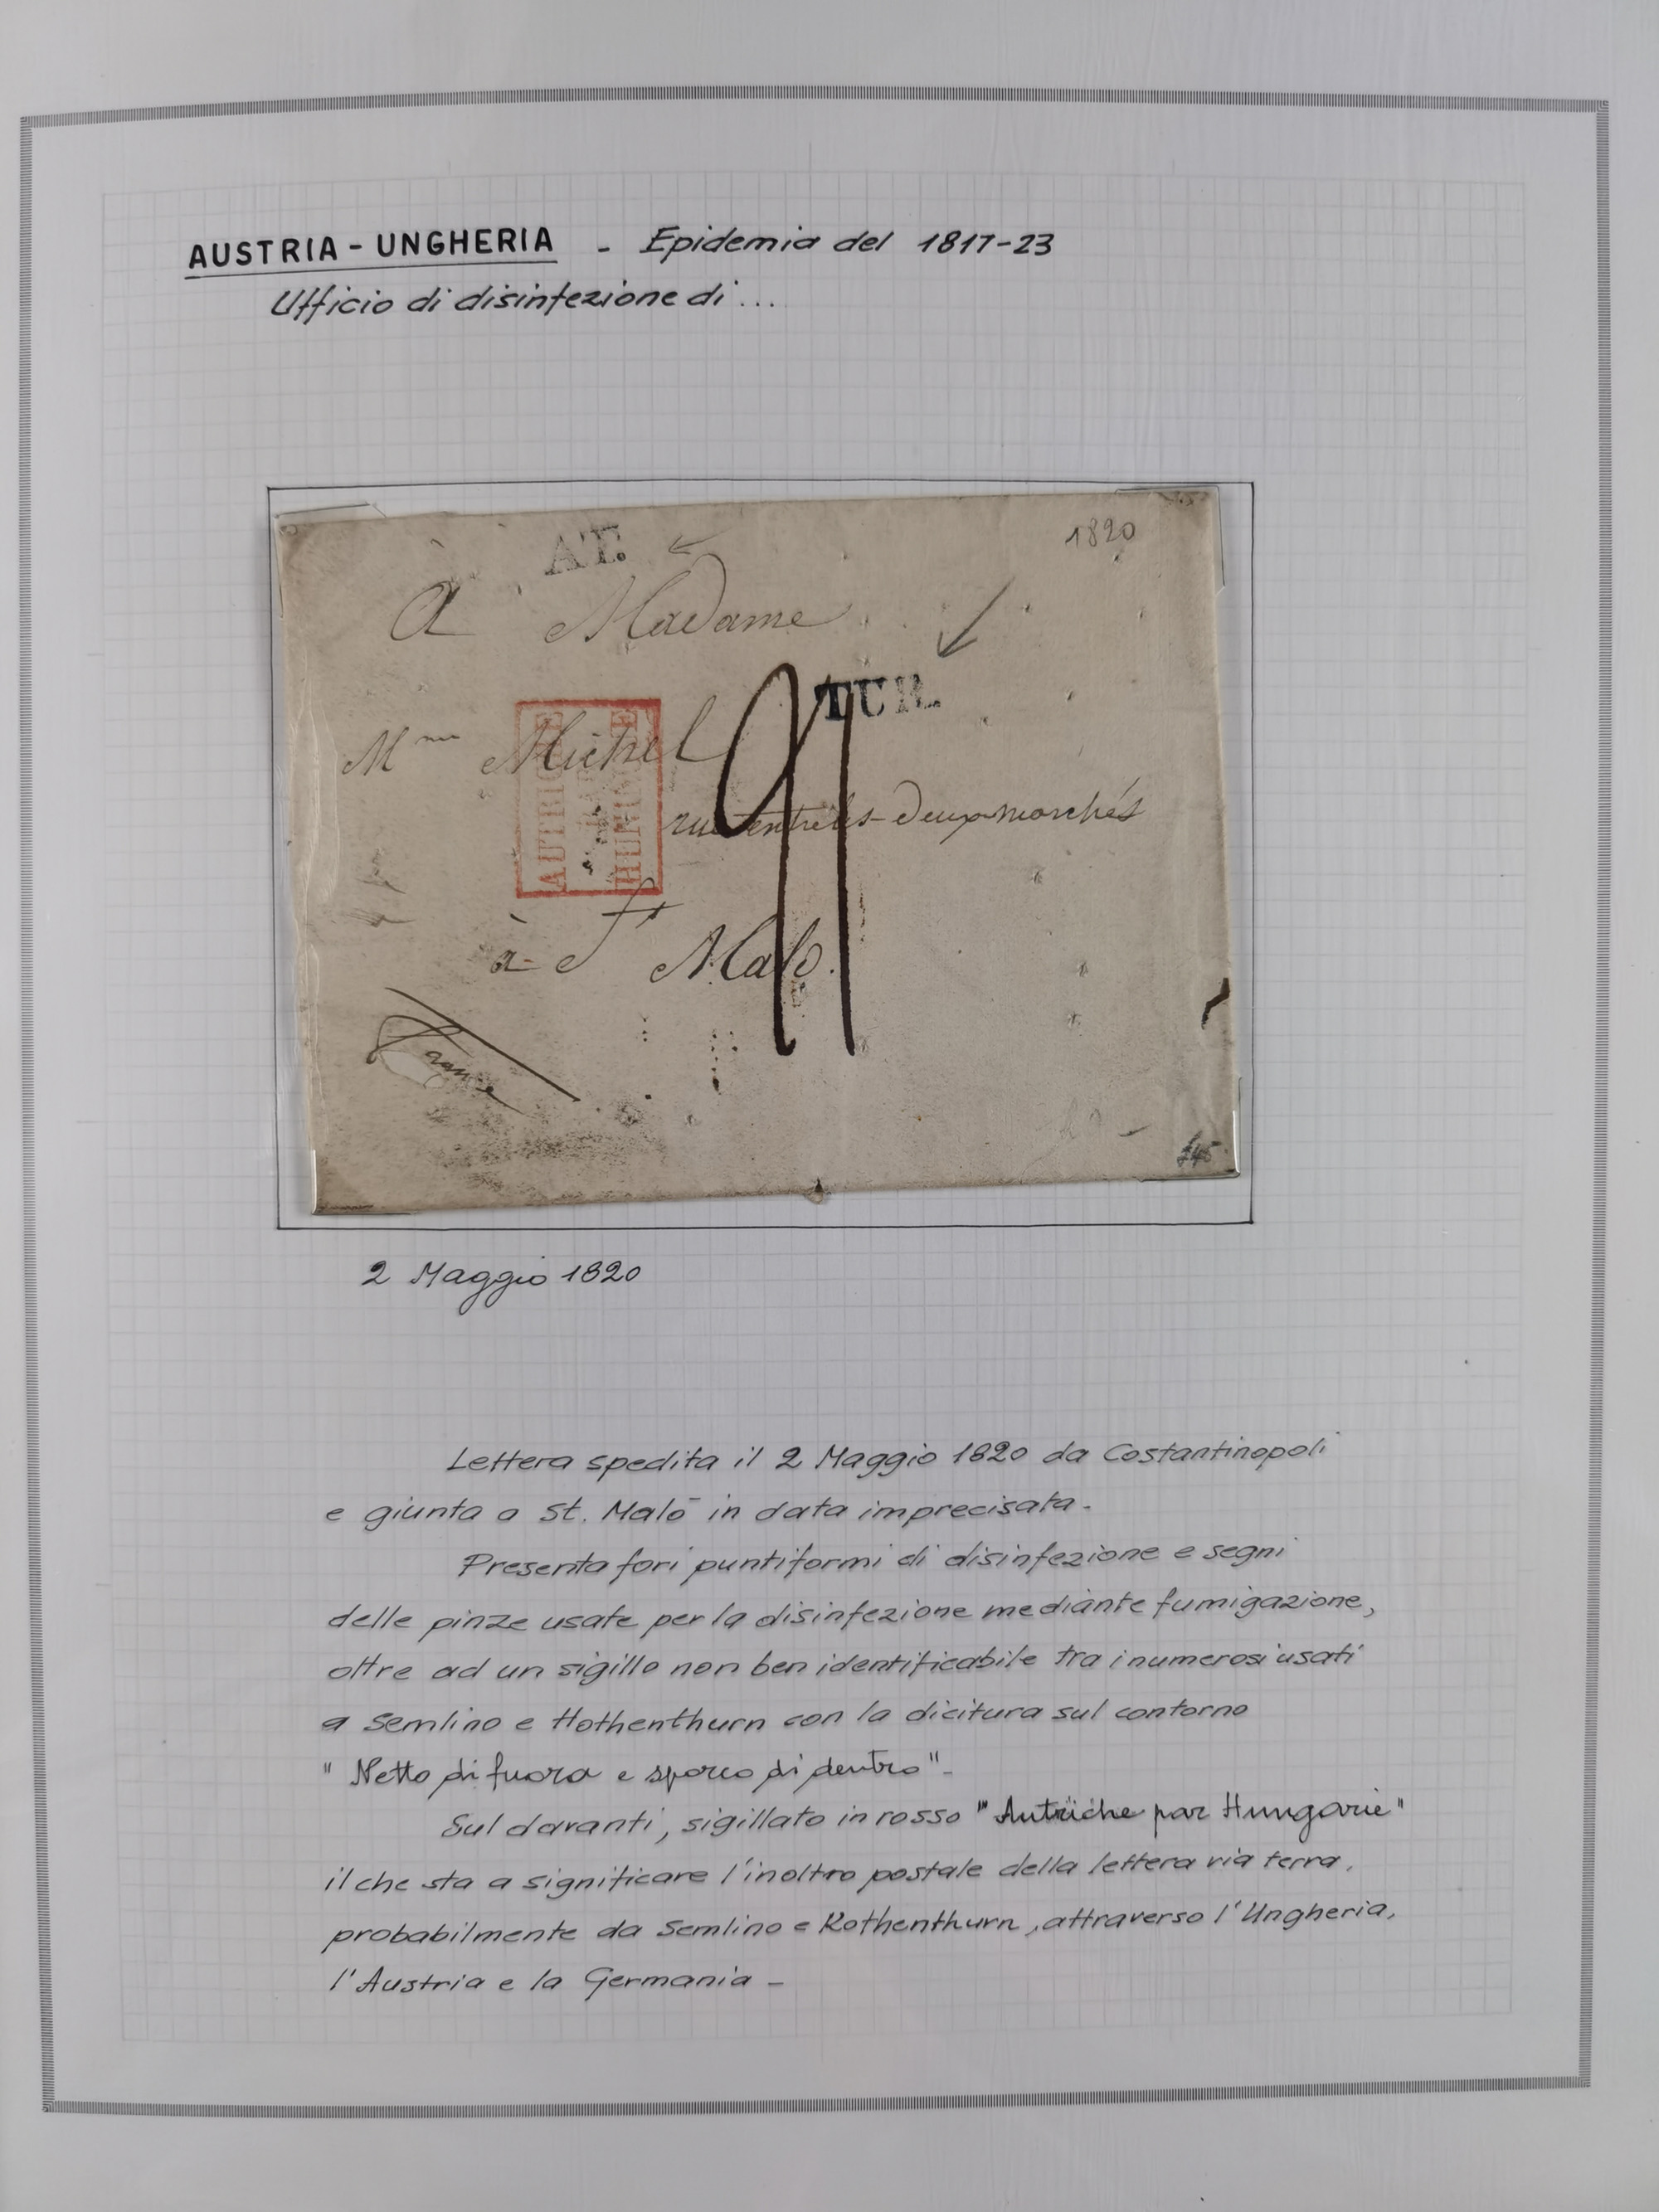 AUSTRIA - UNGHERIA - Epidemia del 1817-23
Ufficio di disinfezione di ...
A.T.
1820
A Madame
TUR.
Mme Michel
AUTRICHE
PAR
HUNINGUE
rue entre les-deux marchés
à St Malo.
France
245
2 Maggio 1820
Lettera spedita il 2 Maggio 1820 da Costantinopoli
e giunta a St. Malō in data imprecisata.
Presenta fori puntiformi di disinfezione e segni
delle pinze usate per la disinfezione mediante fumigazione,
oltre ad un sigillo non ben identificabile tra i numerosi usati
a Semlino e Hothenthurn con la dicitura sul contorno
" Netto di fuora e sporco di dentro" -
Sul davanti, sigillato in rosso "Autriche par Hungarie"
il che sta a significare l'inoltro postale della lettera via terra,
probabilmente da Semlino e Rothenthurn, attraverso l'Ungheria,
l'Austria e la Germania -